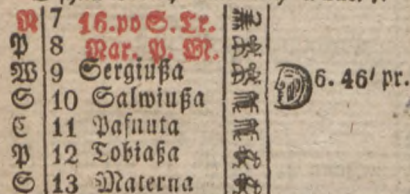 N 7 16. po S. Tr.
P 8 Nar. P. M.
W 9 Sergiußa
S 10 Salwiußa 6. 46' pr.
C 11 Pafnuta
P 12 Tobiaßa
S 13 Materna